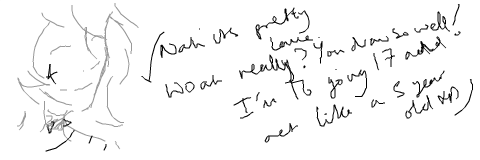 Nah its pretty
lame.
Woah really? You draw so well!
I'm to going 17 and
act like a 5 year
old xD